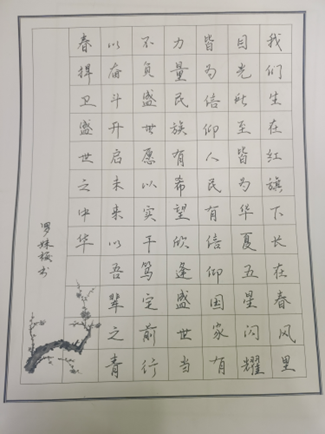 我们生在红旗下长在春风里
目光所至皆为华夏五星闪耀
皆为信仰人民有信仰国家有
力量民族有希望欣逢盛世当
不负盛世愿以实干笃定前行
以奋斗开启未来以吾辈之青
春捍卫盛世之中华
罗妹梅书